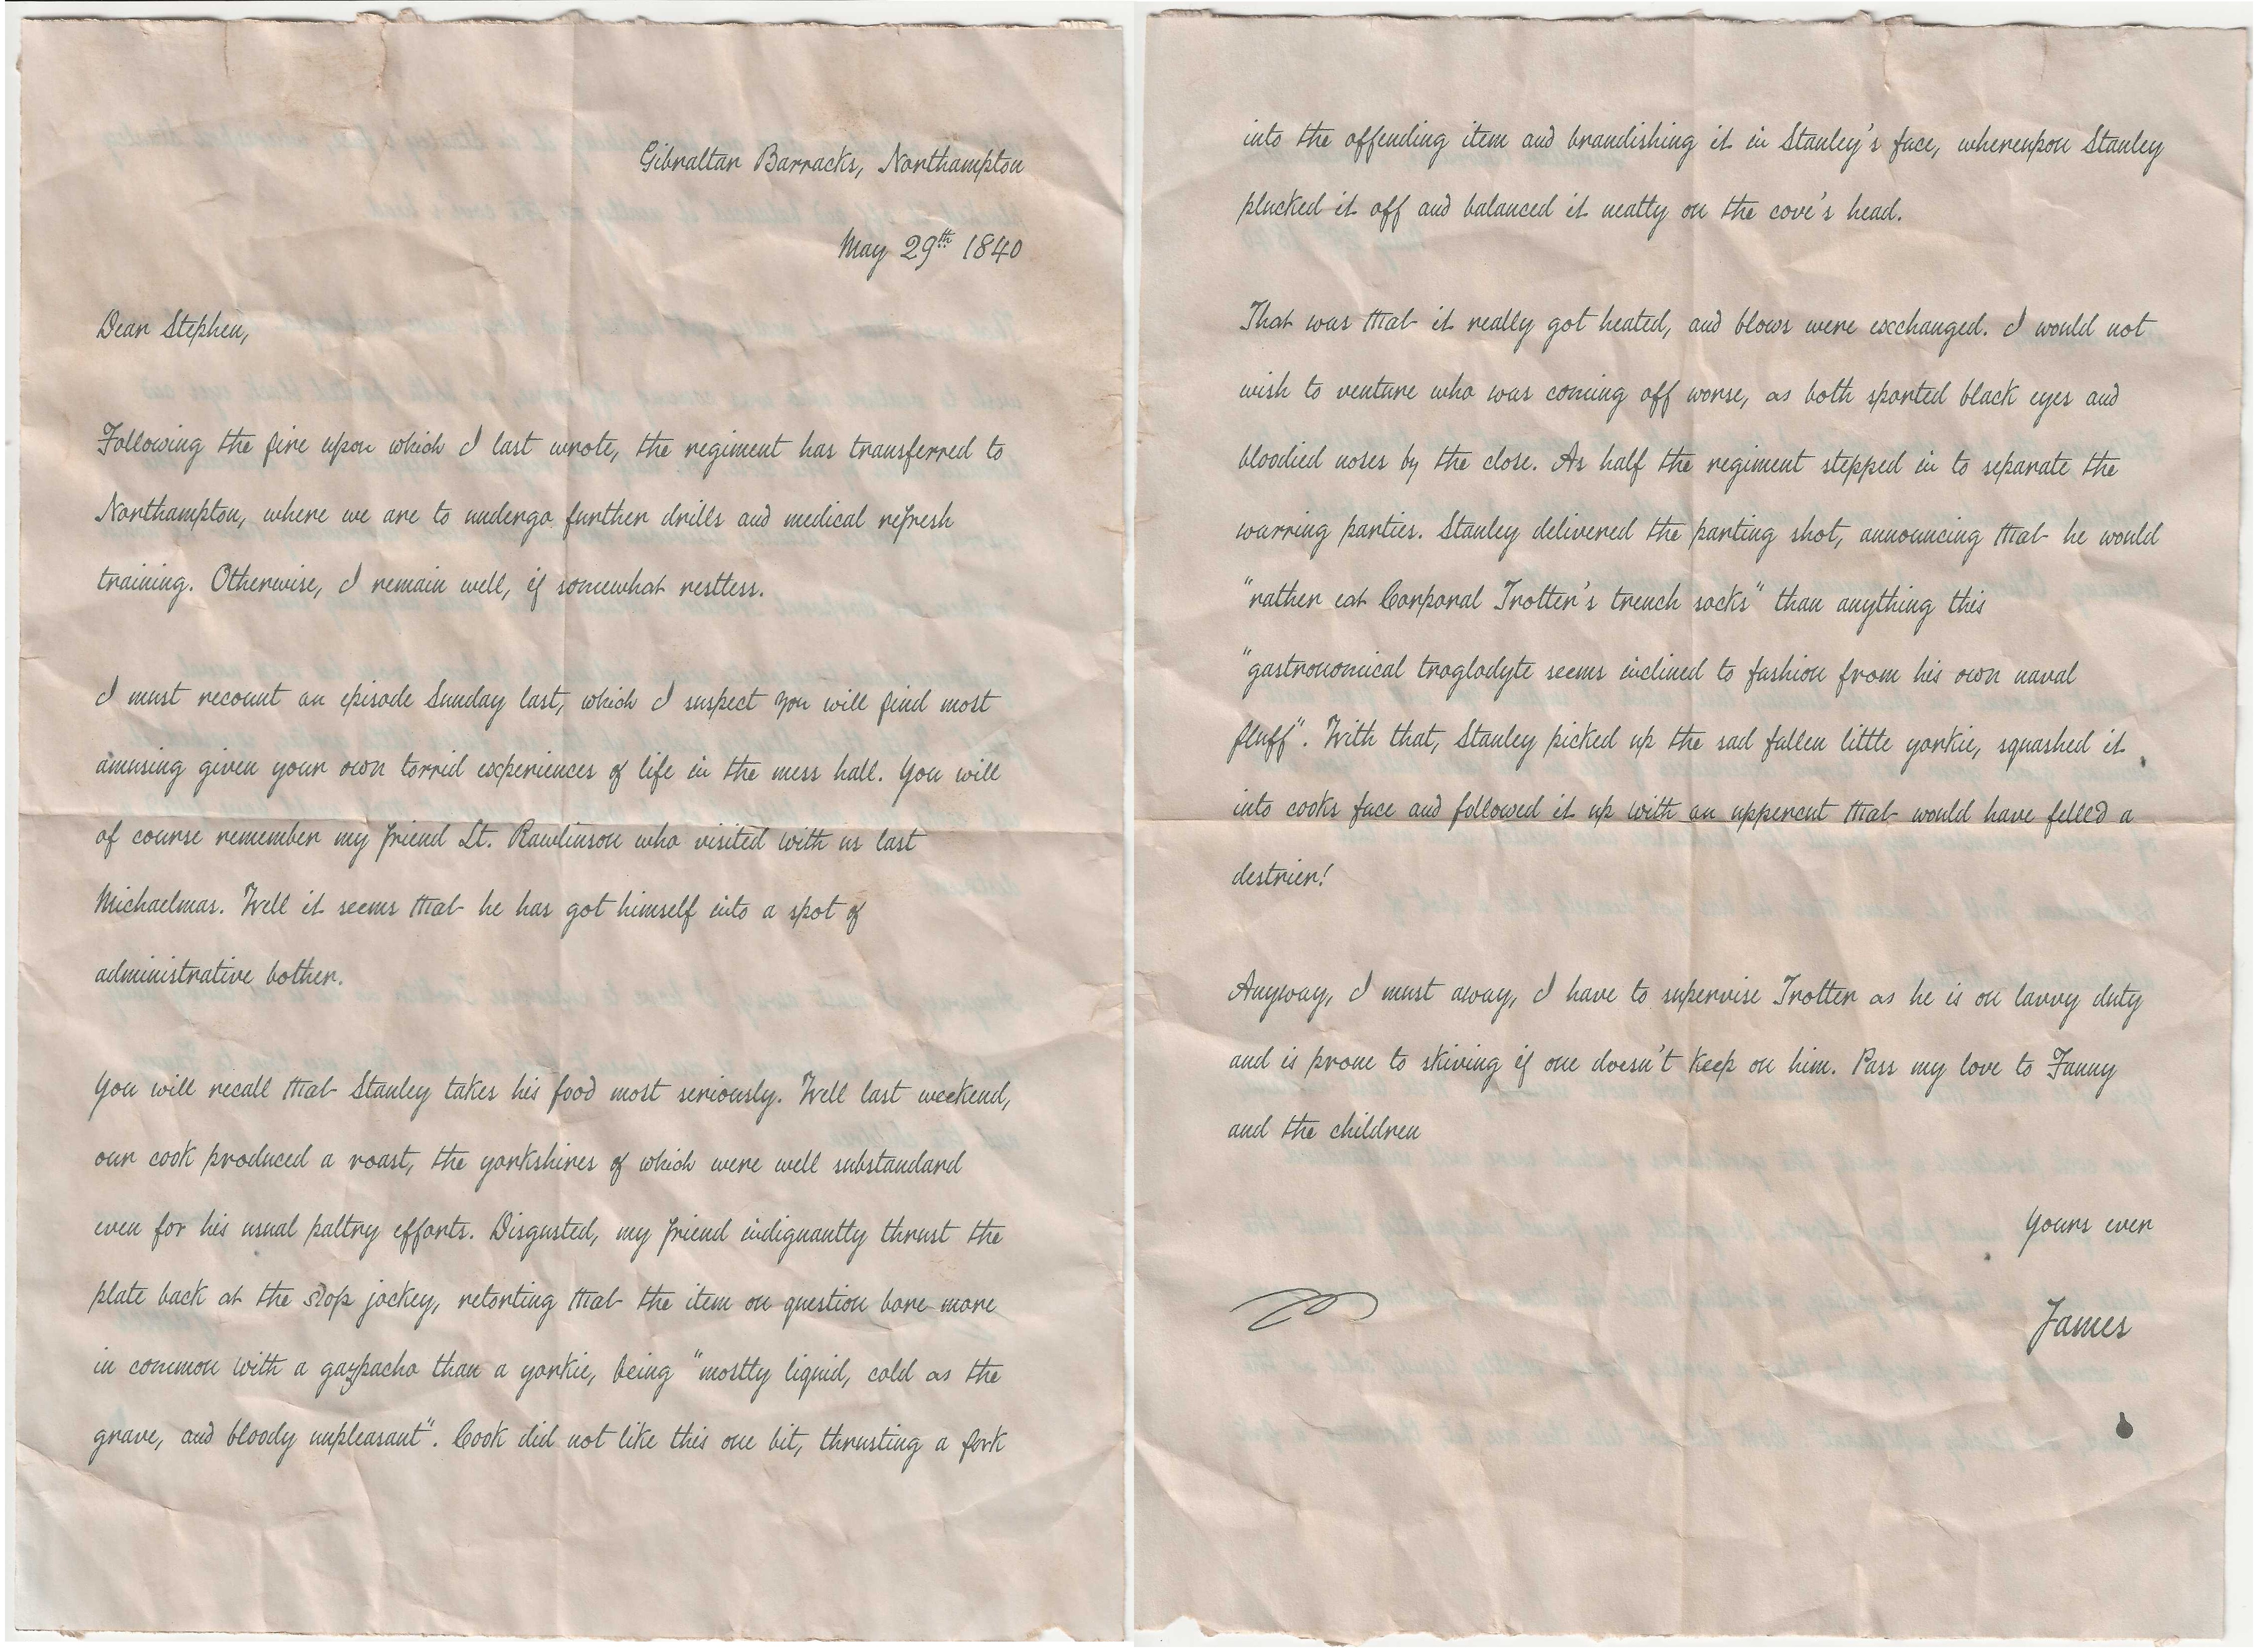 Gibraltar Barracks, Northampton
May 29th 1840
Dear Stephen,
Following the fire upon which I last wrote, the regiment has transferred to
Northampton, where we are to undergo further drills and medical refresh
training. Otherwise, I remain well, if somewhat restless.
I must recount an episode Sunday last, which I suspect you will find most
amusing given your own torrid experiences of life in the mess hall. You will
of course remember my friend Lt. Rawlinson who visited with us last
Michaelmas. Well it seems that he has got himself into a spot of
administrative bother.
You will recall that Stanley takes his food most seriously. Well last weekend,
our cook produced a roast, the yorkshires of which were well substandard
even for his usual paltry efforts. Disgusted, my friend indignantly thrust the
plate back at the slop jockey, retorting that the item on question bore more
in common with a gazpacho than a yorkie, being "mostly liquid, cold as the
grave, and bloody unpleasant". Cook did not like this one bit, thrusting a fork
into the offending item and brandishing it in Stanley's face, whereupon Stanley
plucked it off and balanced it neatly on the cove's head.
That was that it really got heated, and blows were exchanged. I would not
wish to venture who was coming off worse, as both sported black eyes and
bloodied noses by the close. As half the regiment stepped in to separate the
warring parties. Stanley delivered the parting shot, announcing that he would
"rather eat Corporal Trotter's trench socks" than anything this
"gastronomical troglodyte seems inclined to fashion from his own naval
fluff". With that, Stanley picked up the sad fallen little yorkie, squashed it
into cooks face and followed it up with an uppercut that would have felled a
destrier!
Anyway, I must away, I have to supervise Trotter as he is on lavvy duty
and is prone to skiving if one doesn't keep on him. Pass my love to Fanny
and the children
Yours ever
James